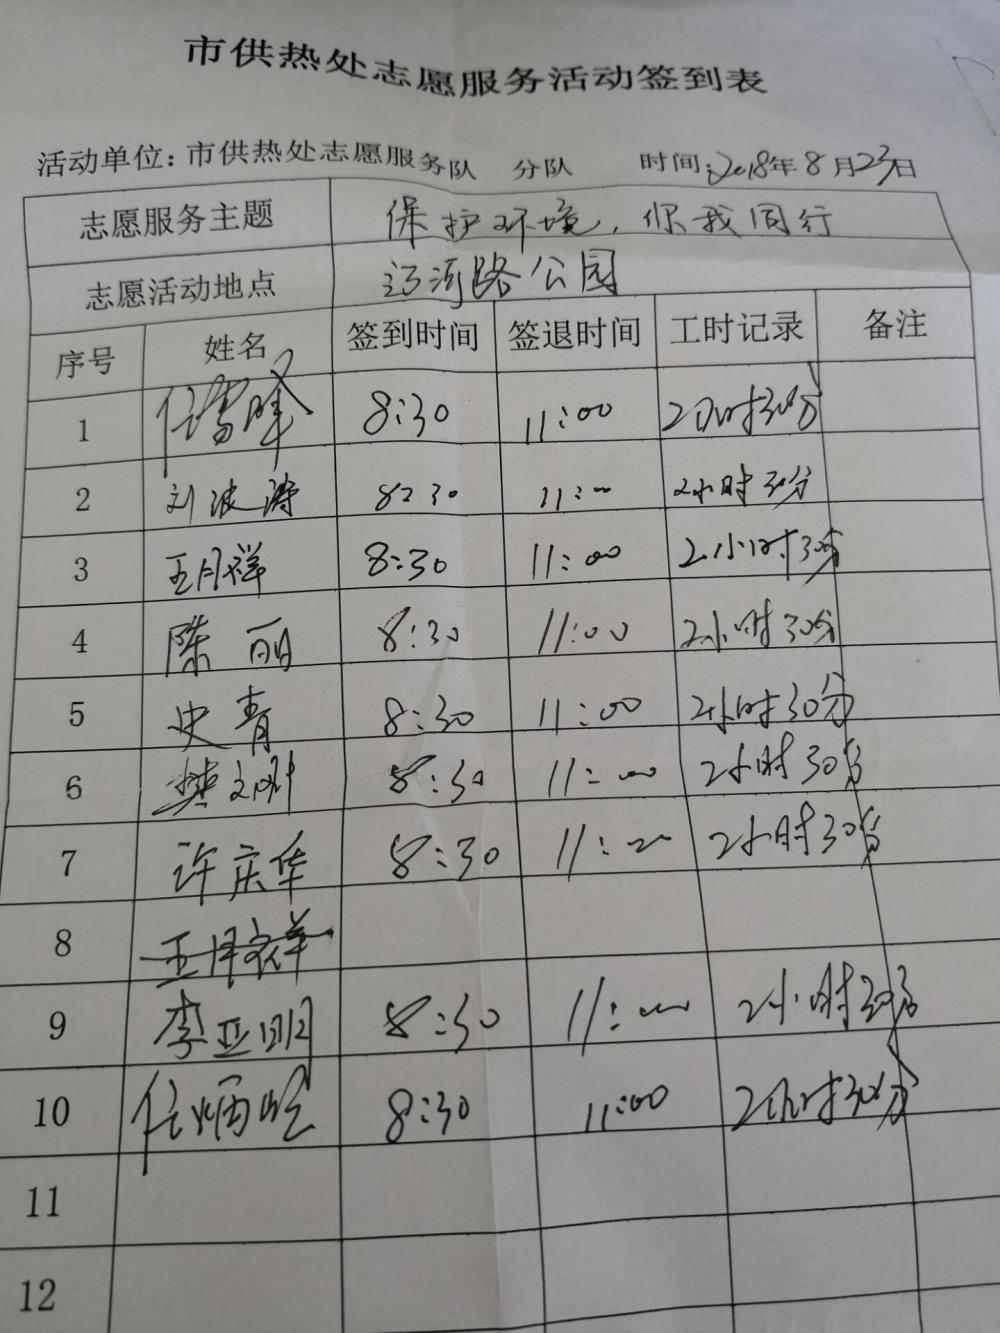 市供热处志愿服务活动签到表
活动单位：市供热处志愿服务队 分队 时间：2018年8月23日
志愿服务主题 保护环境，你我同行
志愿活动地点 迈河路公园
序号 姓名 签到时间 签退时间 工时记录 备注
1 任雪峰 8:30 11:00 2小时30分
2 刘波涛 8:30 11:00 2小时30分
3 王月祥 8:30 11:00 2小时30分
4 陈丽 8:30 11:00 2小时30分
5 史青 8:30 11:00 2小时30分
6 樊文刚 8:30 11:00 2小时30分
7 许庆华 8:30 11:00 2小时30分
8 王月祥
9 李亚明 8:30 11:00 2小时30分
10 任炳 8:30 11:00 2小时30分
11
12